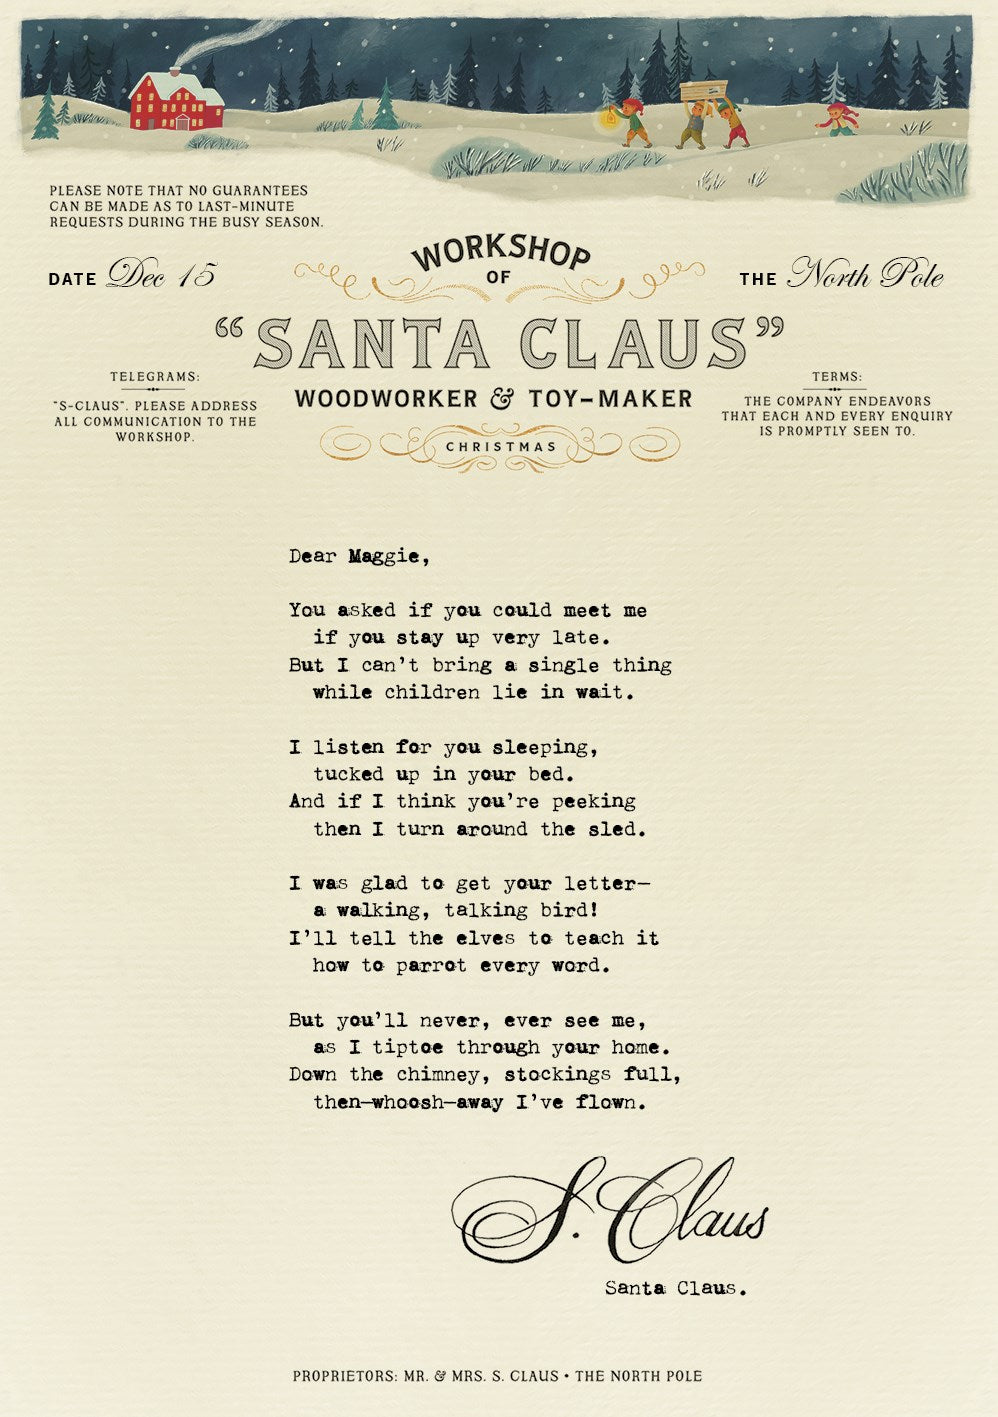 PLEASE NOTE THAT NO GUARANTEES
CAN BE MADE AS TO LAST-MINUTE
REQUESTS DURING THE BUSY SEASON.
DATE Dec 15
WORKSHOP
OF
THE North Pole
“SANTA CLAUS”
WOODWORKER & TOY-MAKER
CHRISTMAS
TELEGRAMS:
"S-CLAUS". PLEASE ADDRESS
ALL COMMUNICATION TO THE
WORKSHOP.
TERMS:
THE COMPANY ENDEAVORS
THAT EACH AND EVERY ENQUIRY
IS PROMPTLY SEEN TO.
Dear Maggie,
You asked if you could meet me
if you stay up very late.
But I can't bring a single thing
while children lie in wait.
I listen for you sleeping,
tucked up in your bed.
And if I think you're peeking
then I turn around the sled.
I was glad to get your letter—
a walking, talking bird!
I'll tell the elves to teach it
how to parrot every word.
But you'll never, ever see me,
as I tiptoe through your home.
Down the chimney, stockings full,
then—whoosh—away I've flown.
S. Claus
Santa Claus.
PROPRIETORS: MR. & MRS. S. CLAUS • THE NORTH POLE